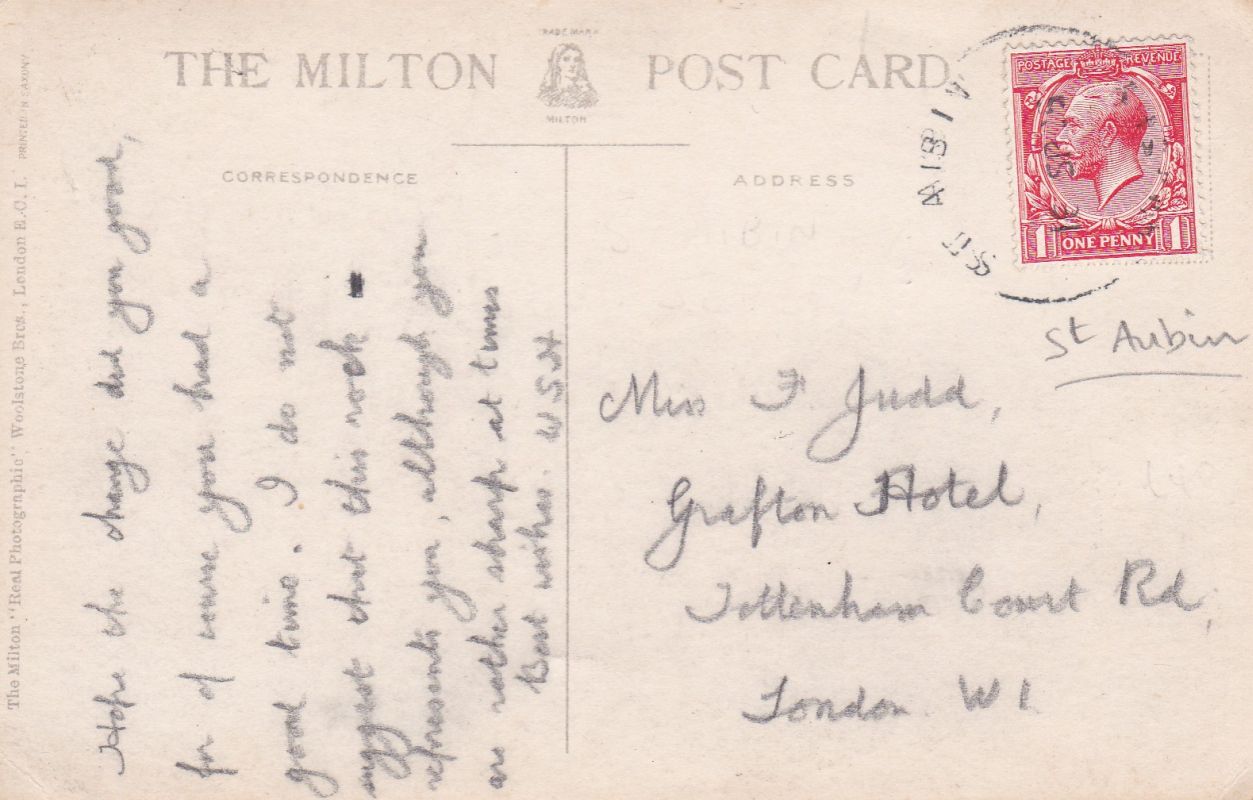 TRADE MARK
THE MILTON POST CARD
MILTON
CORRESPONDENCE
ADDRESS
POSTAGE REVENUE
1 ONE PENNY 1
16 SP
St Aubin
Hope the change did you good,
for of course you had a
good time. I do not
suggest that this rock
represents you, although you
are rather sharp at times
Best wishes. W.S.H
Miss F. Judd,
Grafton Hotel,
Tottenham Court Rd,
London W1
The Milton "Real Photographic" Woolstone Bros., London E.C. 1. PRINTED IN SAXONY